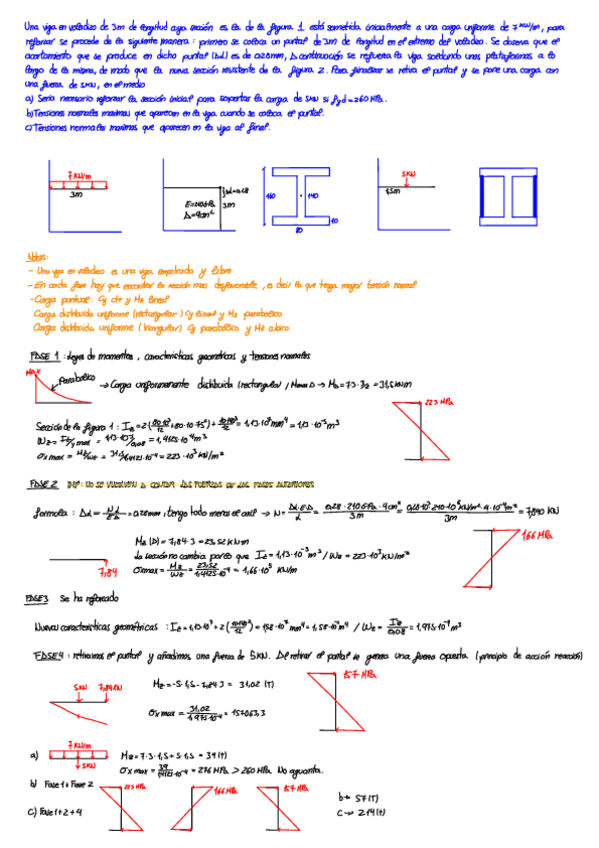 Una viga en voladizo de 3m de longitud cuya sección es la de la figura 1 está sometida inicialmente a una carga uniforme de 7 kN/m, para
reforzar se procede de la siguiente manera: primero se coloca un puntal de 3m de longitud en el extremo del voladizo. Se observa que el
acortamiento que se produce en dicho puntal (ΔL) es de 0,28mm, A continuación se refuerza la viga soldando unas platabandas a lo
largo de la misma, de modo que la nueva sección resistente es la figura 2. Para finalizar se retira el puntal y se pone una carga con
una fuerza de 5kN, en el medio
a) Seria necesario reforzar la sección inicial para soportar la carga de 5kN si fyd=260 MPa.
b) Tensiones normales maximas que aparecen en la viga cuando se coloca el puntal.
c) Tensiones normales maximas que aparecen en la viga al final.
7 kN/m
3m
ΔL=0,28
3m
E=210GPa
A=4cm²
160
140
10
80
5kN
1,5m
Notas:
- Una viga en voladizo es una viga empotrada y libre
- En cada fase hay que encontrar la sección mas desfavorable, es decir la que tenga mayor tensión normal
- Carga puntual: Cy cte y Mz lineal
Carga distribuida uniforme (rectangular) Cy lineal y Mz parabolico
Carga distribuida uniforme (triangular) Cy parabolico y Mz cubico.
FASE 1: leyes de momentos, caracteristicas geometricas y tensiones normales
Max
Parabolico
→ Carga uniformemente distribuida (rectangular), M max A → Ma=7·3·3/2 = 31,5 kNm
223 MPa
Sección de la figura 1: Iz = 2(80·10³/12 + 80·10·75²) + 10·140³/12 = 1,13·10⁷ mm⁴ = 1,13·10⁻⁵ m³
Wz = Iz/ymax = 1,13·10⁻⁵/0,08 = 1,4125·10⁻⁴ m³
σx max = Mz/Wz = 31,5/1,4125·10⁻⁴ = 223·10³ kN/m²
FASE 2 IMP: NO SE VUELVEN A CONTAR LAS FUERZAS DE LAS FASES ANTERIORES
formula: ΔL = - N·L/E·A = 0,28mm, tengo todo menos el axil → N = ΔL·E·A/L = 0,28·210GPa·4cm²/3m = 0,28·10⁻³·210·10⁶ kN/m²·4·10⁻⁴m²/3m = 7,840 KN
7,84
Mz (A) = 7,84·3 = 23,52 kNm
La sección no cambia por lo que Iz = 1,13·10⁻⁵ m³ / Wz = 223·10³ kN/m²
σx max = Mz/Wz = 23,52/1,4125·10⁻⁴ = 1,66·10⁵ kN/m
166 MPa
FASE 3 Se ha reforzado
Nuevas caracteristicas geometricas: Iz = 1,13·10⁷ + 2(10·140³/12) = 1,58·10⁷ mm⁴ = 1,58·10⁻⁵ m⁴ / Wz = Iz/0,08 = 1,975·10⁻⁴ m³
FASE 4: retiramos el puntal y añadimos una fuerza de 5KN. Al retirar el puntal se genera una fuerza opuesta (principio de acción reacción)
5kN 7,84kN
Mz = -5·1,5 - 7,84·3 = 31,02 (T)
σx max = 31,02/1,975·10⁻⁴ = 157063,3
157 MPa
a)
7 kN/m
5kN
Mz = 7·3·1,5 + 5·1,5 = 39 (T)
σx max = 39/1,4125·10⁻⁴ = 276 MPa > 260 MPa No aguanta.
b) Fase 1 + Fase 2
223 MPa
166 MPa
157 MPa
b → 57 (T)
c) Fase 1+2+4
c → 214 (T)